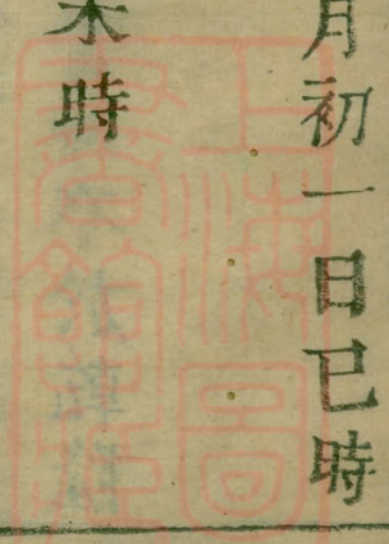 月初一日巳時
未時
上海圖
書館藏